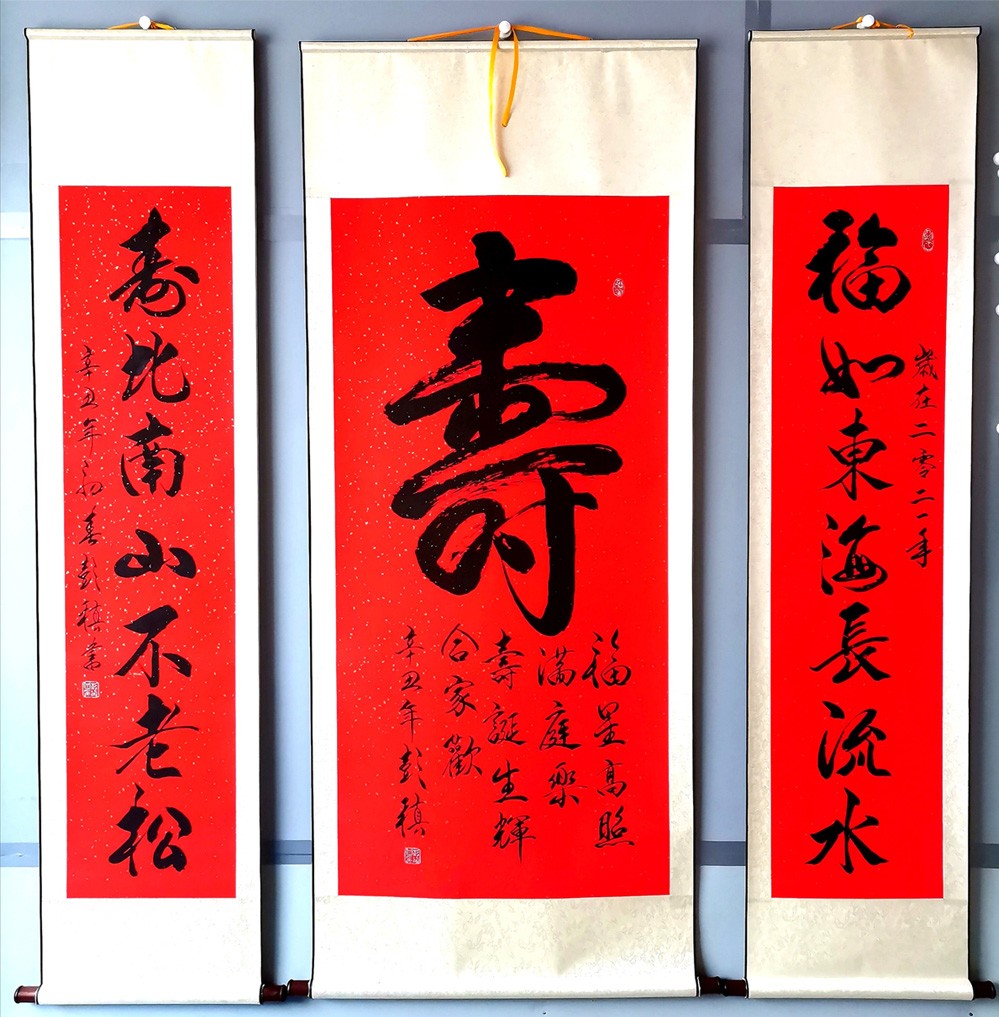 福如東海長流水
歲在二零二一年
壽
福星高照
满庭樂
壽誕生輝
合家歡
辛丑年彭稹
寿比南山不老松
辛丑年之初春彭稹書